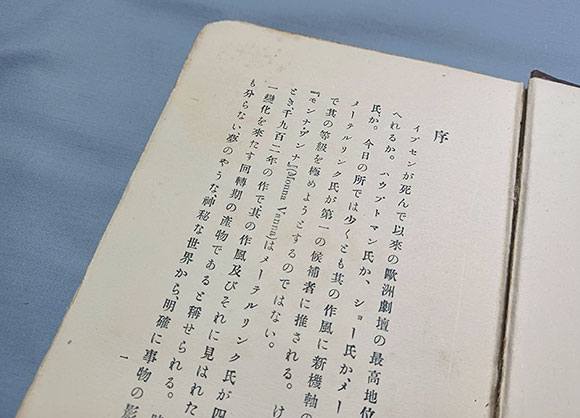 序
イプセンが死んで以來の歐洲劇壇の最高地位
へれるか。ハウプトマン氏か、ショー氏か、メー
氏か。今日の所では少くとも其の作風に新機軸の
メーテルリンク氏が第一の候補者に推される。け
で其の等級を極めようとするのではない。
『モンナ、ヷンナ』(Monna Vanna)はメーテルリンク氏が四
とき、千九百二年の作で、其の作風及びそれに見はれた
一變化を來たす回轉期の産物であると稱せられる。
も分らない夢のやうな神秘な世界から、明確に事物の影
一